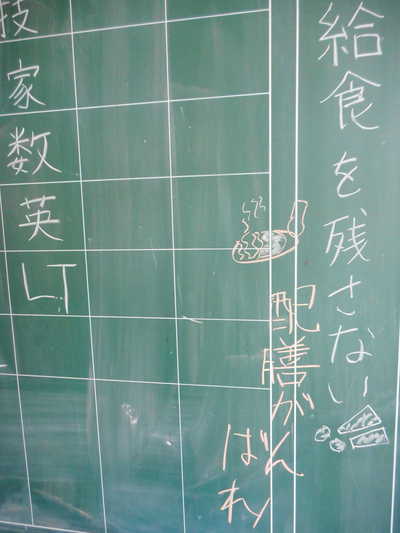 給食を残さない
配膳がん
ばれ
技
家
数
英
LT